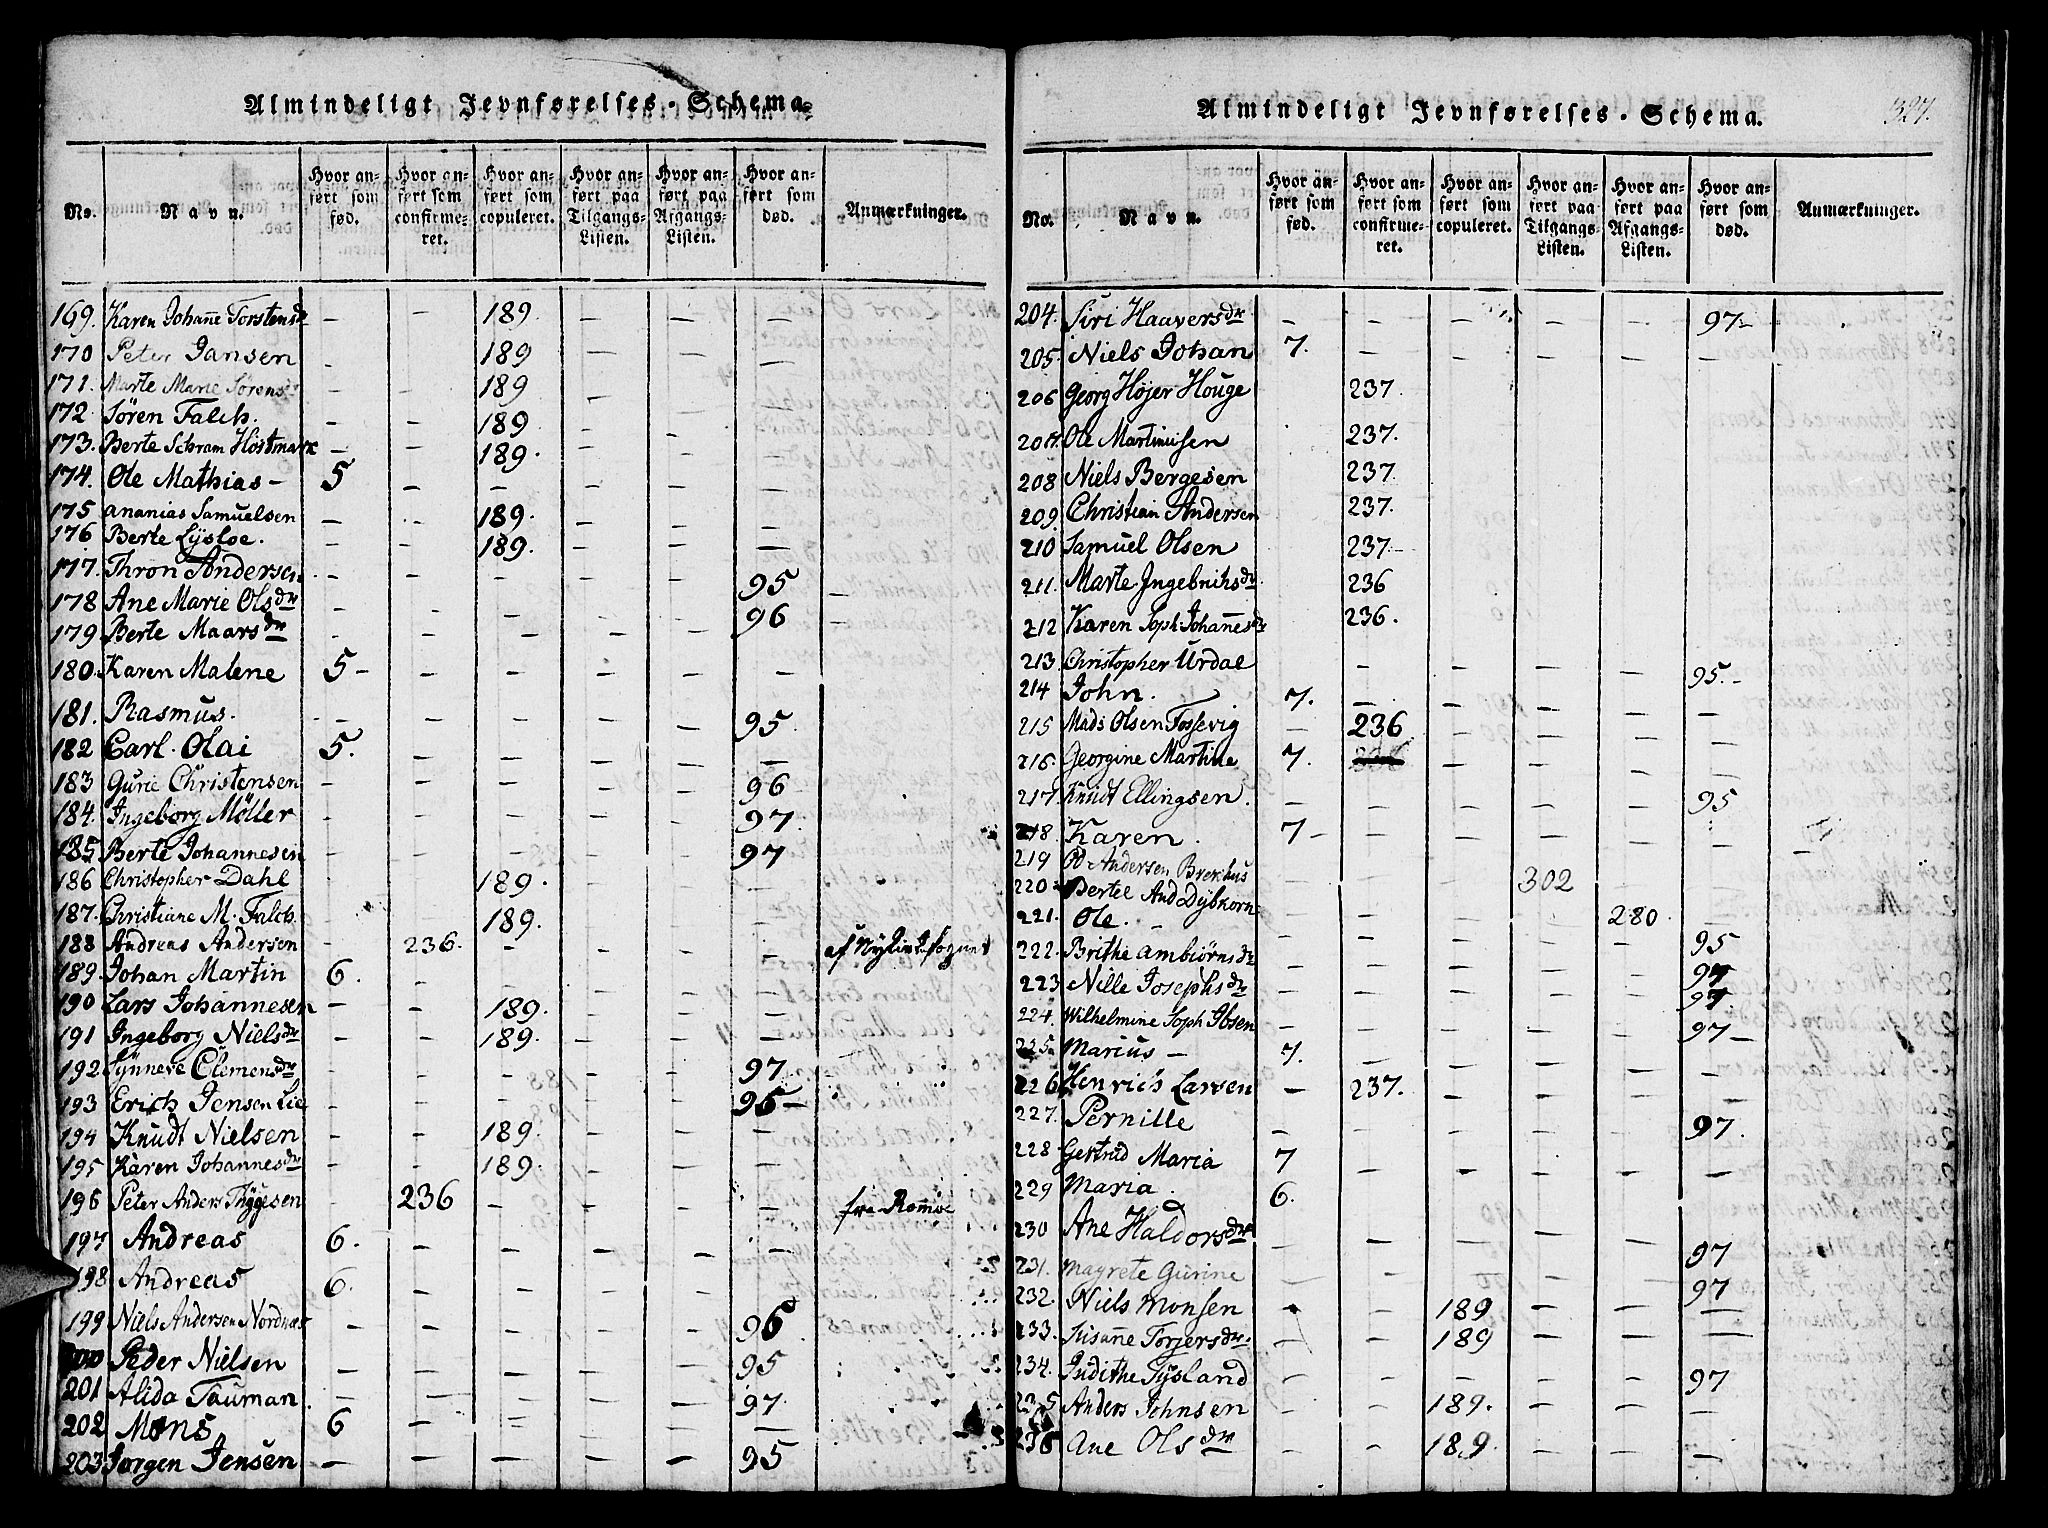 Almindeligt Jevnførelses-Schema.
No. Navn. Hvor anført som fød. Hvor anført som confirmeret. Hvor anført som copuleret. Hvor anført paa Tilgangs-Listen. Hvor anført paa Afgangs-Listen. Hvor anført som død. Anmærkninger.
169. Karen Johañe Torstensdr — — 189. — — —
170 Peter Jansen — — 189 — — —
171. Marte Marie Sørensdr — — 189 — — —
172 Sören Falch. — — 189 — — —
173. Berte Schram Hostmark — — 189. — — —
174. Ole Mathias — 5 — — — — —
175 Ananias Samuelsen — — 189. — — —
176 Berte Lysloe. — — 189. — — —
177. Thron Andersen — — — — — 95
178 Ane Marie Olsdr — — — — — 96 —
179 Berte Maarsdr — — — — — —
180. Karen Malene 5 — — — — — —
181. Rasmus. — — — — — 95
182 Carl Olai 5. — — — — —
183 Gurie Christensen — — — — — 96
184. Ingeborg Möller — — — — — 97.
185 Berte Johannesen — — — — — 97
186 Christopher Dahl — — 189. — — —
187. Christiane M. Falch — — 189. — — —
188 Andreas Andersen — 236. — — — —
189. Johan Martin 6. — — — — —
190 Lars Johannesen — — 189. — — —
191 Ingeborg Nielsdr — — 189. — — —
192 Synneve Clemensdr — — — — — 97
193 Erich Jensen Lie — — — — — 95 —
194 Knudt Nielsen — — 189. — — —
195 Karen Johannesdr — — 189. — — —
196 Peter Anders Thygesen — 236 — — — — fra Romöe
197 Andreas 6. — — — — —
198 Andreas 6. — — — — —
199 Niels Andersen Nordnæs — — — — — 96
200 Peder Nielsen — — — — — 95
201 Alida Tauman — — — — — 97.
202 Mons 6 — — — — —
203 Jørgen Jensen — — — — — 95
Almindeligt Jevnførelses-Schema. 327.
No. Navn. Hvor anført som fød. Hvor anført som confirmeret. Hvor anført som copuleret. Hvor anført paa Tilgangs-Listen. Hvor anført paa Afgangs-Listen. Hvor anført som død. Anmærkninger.
204. Siri Haaversdr — — — — — 97 —
205. Niels Johan 7. — — — — —
206 Georg Höjer Houge 237.
207. Ole Martinusen 237.
208 Niels Bergesen 237.
209. Christian Andersen 237.
210 Samuel Olsen 237 —
211. Marte Ingebrihsdr. 236
212 Karen Soph: Johañesdr 236.
213. Christopher Urdal — — — — 95. —
214 John. 7. — — — — —
215 Mads Olsen Fossevig — 236 — — — —
216. Georgine Martine 7. 236 — — — —
217. Knudt Ellingsen. — — — — — 95
218 Karen. 7 — — — — — —
219 Andersen — — — 302 — —
220 Bertel And Dybkorn — — — — 280. —
221. Ole. — — — — — 95
222. Brithe Ambiörnsdr — — — — — 97
223 Nille Josephsdr — — — — — 97
224. Wilhelmine Soph Ibsen — — — — — 97 —
225. Marius — 7. — — — — —
226 Henrich Larsen — 237. — — — —
227. Pernille — — — — — 97.
228 Gertrud Maria 7 — — — — —
229 Maria. 6. — — — — —
230 Ane Haldorsdr — — — — — 97
231. Magrete Gurine — — — — — 97
232. Niels Monsen — — 189 — — —
233. Susañe Torjersdr. — — 189 — — —
234. Judithe Tysland — — — — — 97
235 Anders Johnsen — — 189. — — —
236 Ane Olsdr — — 189. — — —